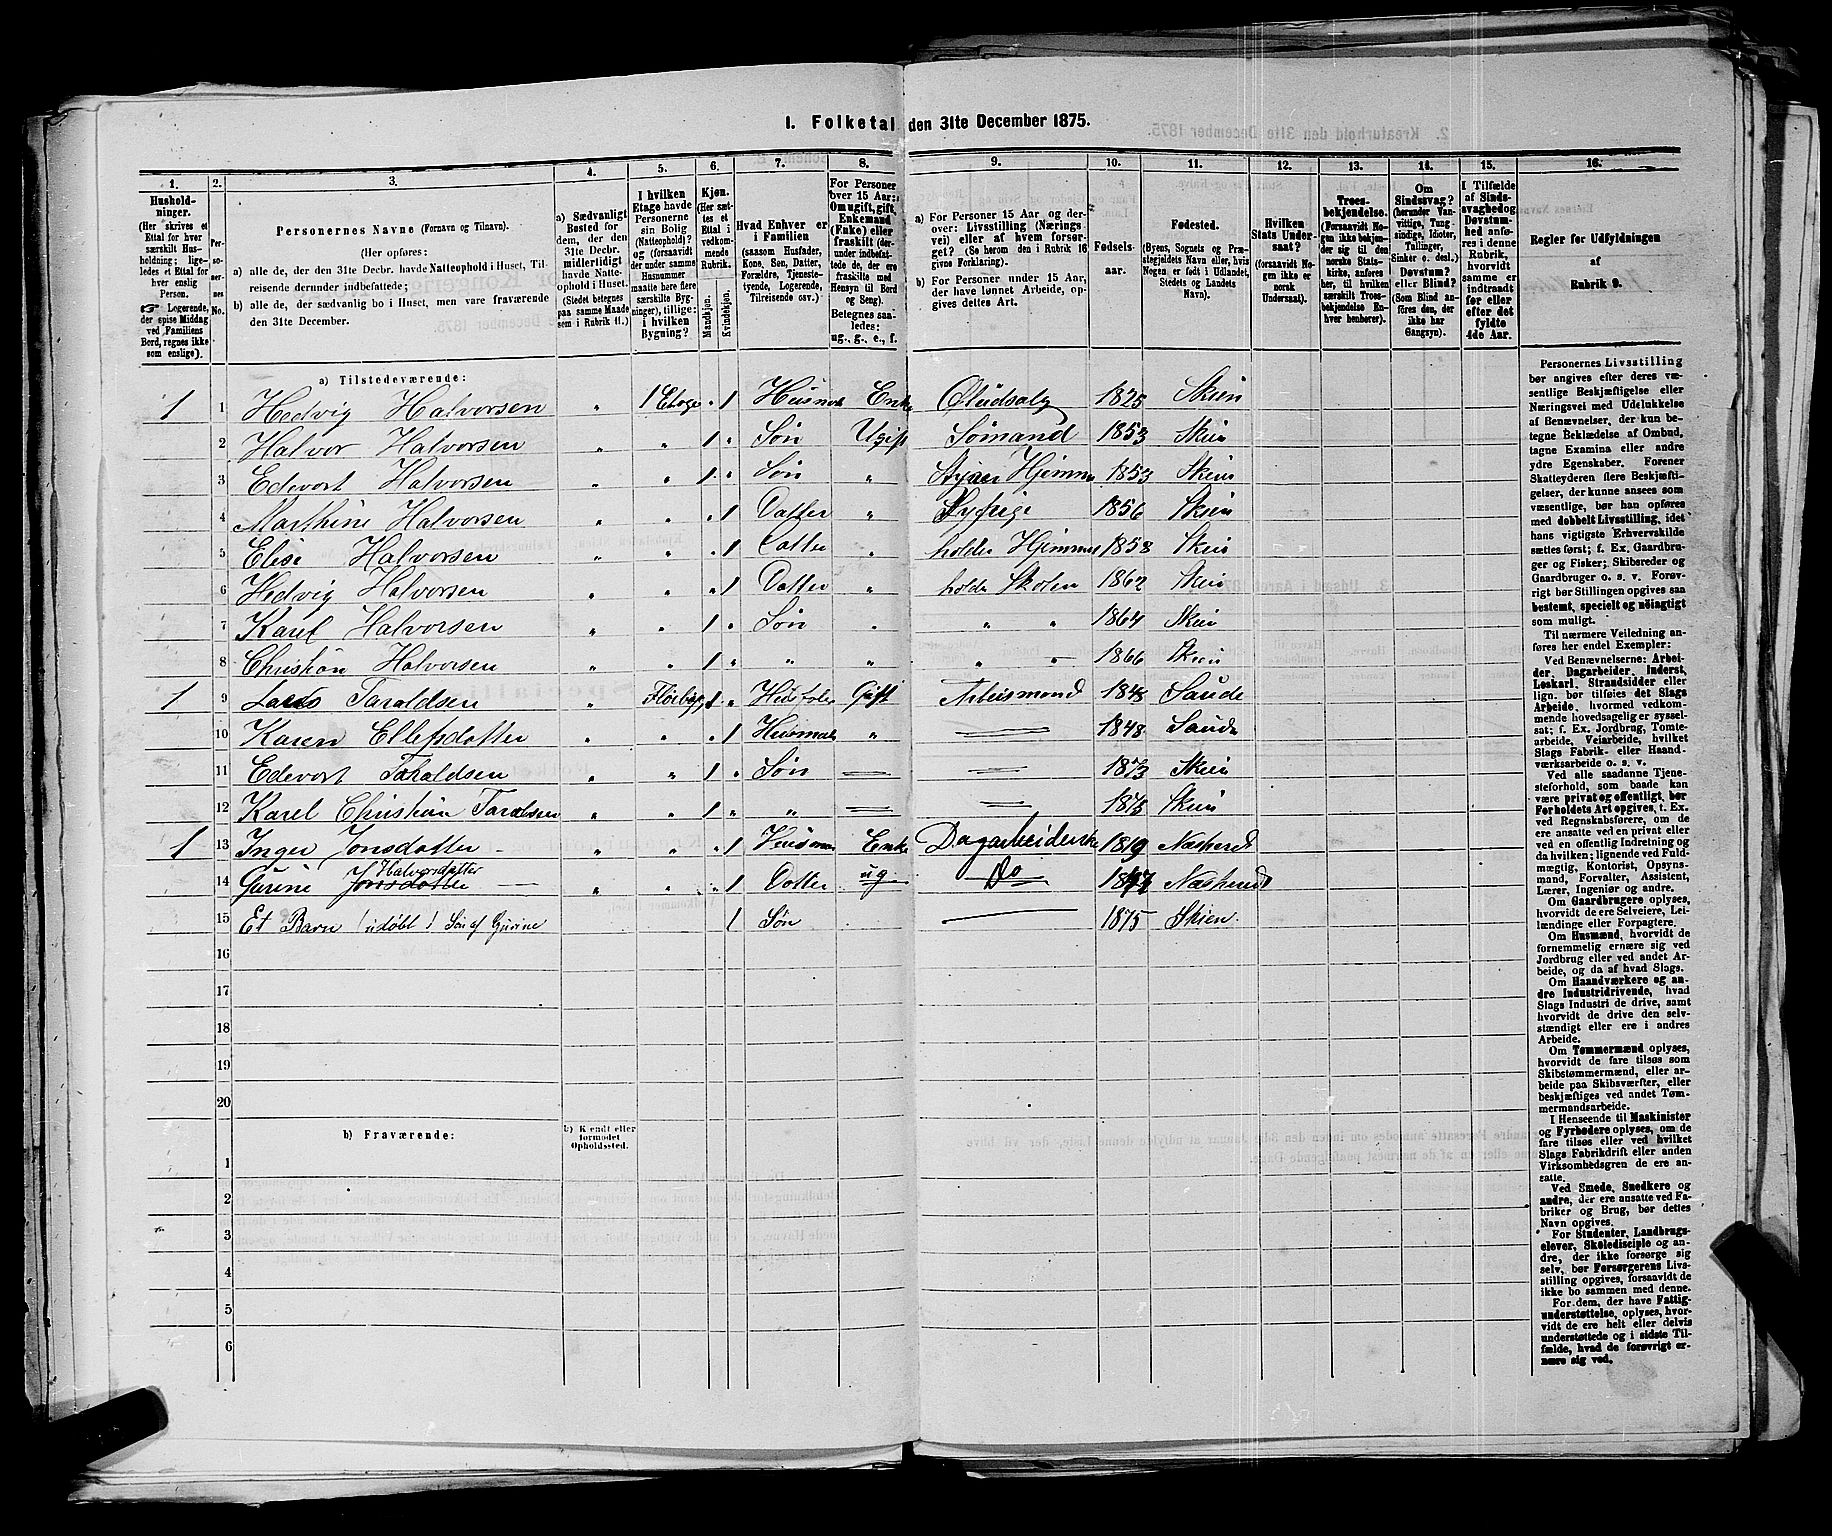 I. Folketal den 31te December 1875.
1. 2. 3. 4. 5. 6. 7. 8. 9. 10. 11. 12. 13. 14. 15. 16.
Husholdninger. (Her skrives et Ettal for hver særskilt Husholdning; ligeledes et Ettal for hver enslig Person. Logerende, der spise Middag ved Familiens Bord, regnes ikke som enslige).
Personernes No.
Personernes Navne (Fornavn og Tilnavn).
(Her opføres:
a) alle de, der den 31te Decbr. havde Natteophold i Huset, Tilreisende derunder indbefattede;
b) alle de, der sædvanlig bo i Huset, men vare fraværende den 31te December.
a) Sædvanligt Bosted for dem, der den 31te Decbr. midlerlidigt havde Natteophold i Huset. (Stedet betegnes paa samme Maade som i Rubrik 11.)
I hvilken Etage havde Personerne sin Bolig (Natteophold)? og (forsaavidt der under samme Husnummer maatte høre flere særskilte Bygninger), tillige: i hvilken Bygning?
Kjøn. (Her sættes et Ettal i vedkommende Rubrik. Mandkjøn. Kvindekjøn.
Hvad Enhver er i Familien (saasom Husfader, Kone, Søn, Datter, Forældre, Tjenestetyende, Logerende, Tilreisende osv.)
For Personer over 15 Aar: Om ugift, gift, Enkemand (Enke) eller fraskilt (derunder indbefattede de, der ere fraskilte med Hensyn til Bord og Seng). Betegnes saaledes: ug., g., e., f.
a) For Personer 15 Aar og derover: Livsstilling (Næringsvei) eller af hvem forsørget? (Se herom den i Rubrik 16 givne Forklaring).
b) For Personer under 15 Aar, der have lønnet Arbeide, opgives dettes Art.
Fødselsaar.
Fødested. (Byens, Sognets og Præstegjeldets Navn eller, hvis Nogen er født i Udlandet, Stedets og Landets Navn).
Hvilken Stats Undersaat? (forsaavidt Nogen ikke er norsk Undersaat).
Troesbekjendelse. (Forsaavidt Nogen ikke bekjender sig til den norske Statskirke, anføres her, til hvilken særskilt Troesbekjendelse Enhver henhører).
Om Sindssvag? (herunder Vanvittige, Tungsindige, Idioter, Tullinger, Sinker o. desl.) Døvstum? eller Blind? (Som Blind anføres den, der ikke har Gangsyn).
I Tilfælde af Sindssvaghed og Døvstumhed anføres i denne Rubrik, hvorvidt samme er indtraadt før eller efter det fyldte 4de Aar.
Regler for Udfyldningen af Rubrik 9.
a) Tilstedeværende:
1 1 Hedvig Halvorsen " 1 Etage " 1 Husmoder Enke Øludsalg 1825 Skien
2 Halvor Halvorsen " " 1 " Søn Ugift Sømand 1853 Skien
3 Edevort Halvorsen " " 1 " Søn " Hjemme 1853 Skien
4 Marthine Halvorsen " " " 1 Datter " 1856 Skien
5 Elise Halvorsen " " " 1 Datter " holdes Hjemme 1858 Skien
6 Hedvig Halvorsen " " " 1 Datter " holder Skolen 1862 Skien
7 Karel Halvorsen " " 1 " Søn " " " 1864 Skien
8 Christian Halvorsen " " 1 " " " " " 1866 Skien
1 9 Lars Taraldsen " 1 " Husfader Gift Arbeismand 1848 Saude
10 Karen Ellefsdatter " " " 1 Husmoder " 1848 Saude
11 Edevort Taraldsen " " 1 " Søn 1873 Skien
12 Karel Christian Taraldsen " " 1 " " 1875 Skien
1 13 Inger Jonsdatter " " " 1 Husmor Enke Dagarbeiderske 1819 Næsherad
14 Gurine Jonsdatter Halvorsdatter " " " 1 Datter ug Do Næsherad
15 Et Barn (udøbt) Søn af Gurine 1 Søn 1875 Skien.
16
17
18
19
20
b) Fraværende:
b) Kjendt eller formodet Opholdssted.
1
2
3
4
5
6
Personernes Livsstilling
bør angives efter deres væ-
sentlige Beskjæftigelse eller
Næringsvei med Udelukkelse
af Benævnelser, der kun be-
tegne Beklædelse af Ombud,
tagne Examina eller andre
ydre Egenskaber. Forener
Skatteyderen flere Beskjæfti-
gelser, der kunne ansees som
væsentlige, bør han opføres
med dobbelt Livsstilling, idet
hans vigtigste Erhvervskilde
sættes først; f. Ex. Gaardbru-
ger og Fisker; Skibsreder og
Gaardbruger o. s. v. Forøv-
rigt bør Stillingen opgives saa
bestemt, specielt og nöiagtigt
som muligt.
Til nærmere Veiledning an-
føres her endel Exempler:
Ved Benævnelserne: Arbei-
der, Dagarbeider, Inderst,
Løskarl, Strandsidder eller
lign. bør tilføies det Slags
Arbeide, hvormed vedkom-
mende hovedsagelig er syssel-
sat; f. Ex. Jordbrug, Tomte-
arbeide, Veiarbeide, hvilket
Slags Fabrik- eller Haand-
værksarbeide o. s. v.
Ved alle saadanne Tjene-
steforhold, som baade kan
være privat og offentligt, bør
Forholdets Art opgives, t. Ex.
ved Regnskabsførere, om de
ere ansatte ved en privat eller
en offentlig Indretning og
da hvilken; lignende ved Fuld-
mægtig, Kontorist, Opsyns-
mand, Forvalter, Assistent,
Lærer, Ingeniør og andre.
Om Gaardbrugere oplyses,
hvorvidt de ere Selveiere, Lei-
lændinge eller Forpagtere.
Om Husmænd, hvorvidt de
fornemmelig ernære sig ved
Jordbrug eller ved andet Ar-
beide, og da af hvad Slags.
Om Haandværkere og an-
dre Industridrivende, hvad
Slags Industri de drive, samt
hvorvidt de drive den selv-
stændigt eller ere i andres
Arbeide.
Om Tømmermænd oplyses,
hvorvidt de fare tilsøs som
Skibstømmermænd, eller ar-
beide paa Skibsværfter, eller
beskjæftiges ved andet Tøm-
mermandsarbeide.
I Henseende til Maskinister
og Fyrbødere oplyses, om de
fare tilsøs eller ved hvilket
Slags Fabrikdrift eller anden
Virksomhedsgren de ere an-
satte.
Ved Smede, Snedkere og
andre, der ere ansatte ved Fa-
briker og Brug, bør dettes
Navn opgives.
For Studenter, Landbrugs-
elever, Skoledisciple og an-
dre, der ikke forsørge sig
selv, bør Forsørgerens Livs-
stilling opgives, forsaavidt de
ikke bo sammen med denne.
For dem, der have Fattig-
understøttelse, oplyses, hvor-
vidt de ere helt eller delvis
understøttede og i sidste Til-
fælde, hvad de forøvrigt er-
nære sig ved.